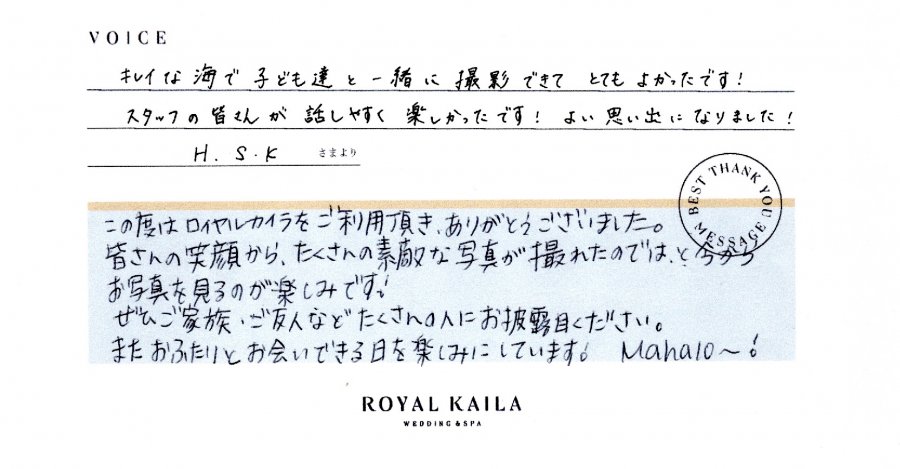 VOICE
キレイな海で子ども達と一緒に撮影できて とてもよかったです!
スタッフの皆さんが話しやすく楽しかったです! よい思い出になりました!
H.S.K さまより
BEST THANK YOU MESSAGE
この度はロイヤルカイラをご利用頂き、ありがとうございました。
皆さんの笑顔から、たくさんの素敵な写真が撮れたのでは、と今から
お写真を見るのが楽しみです!
ぜひご家族・ご友人などたくさんの人にお披露目ください。
またおふたりとお会いできる日を楽しみにしています! Mahalo〜!
ROYAL KAILA
WEDDING & SPA